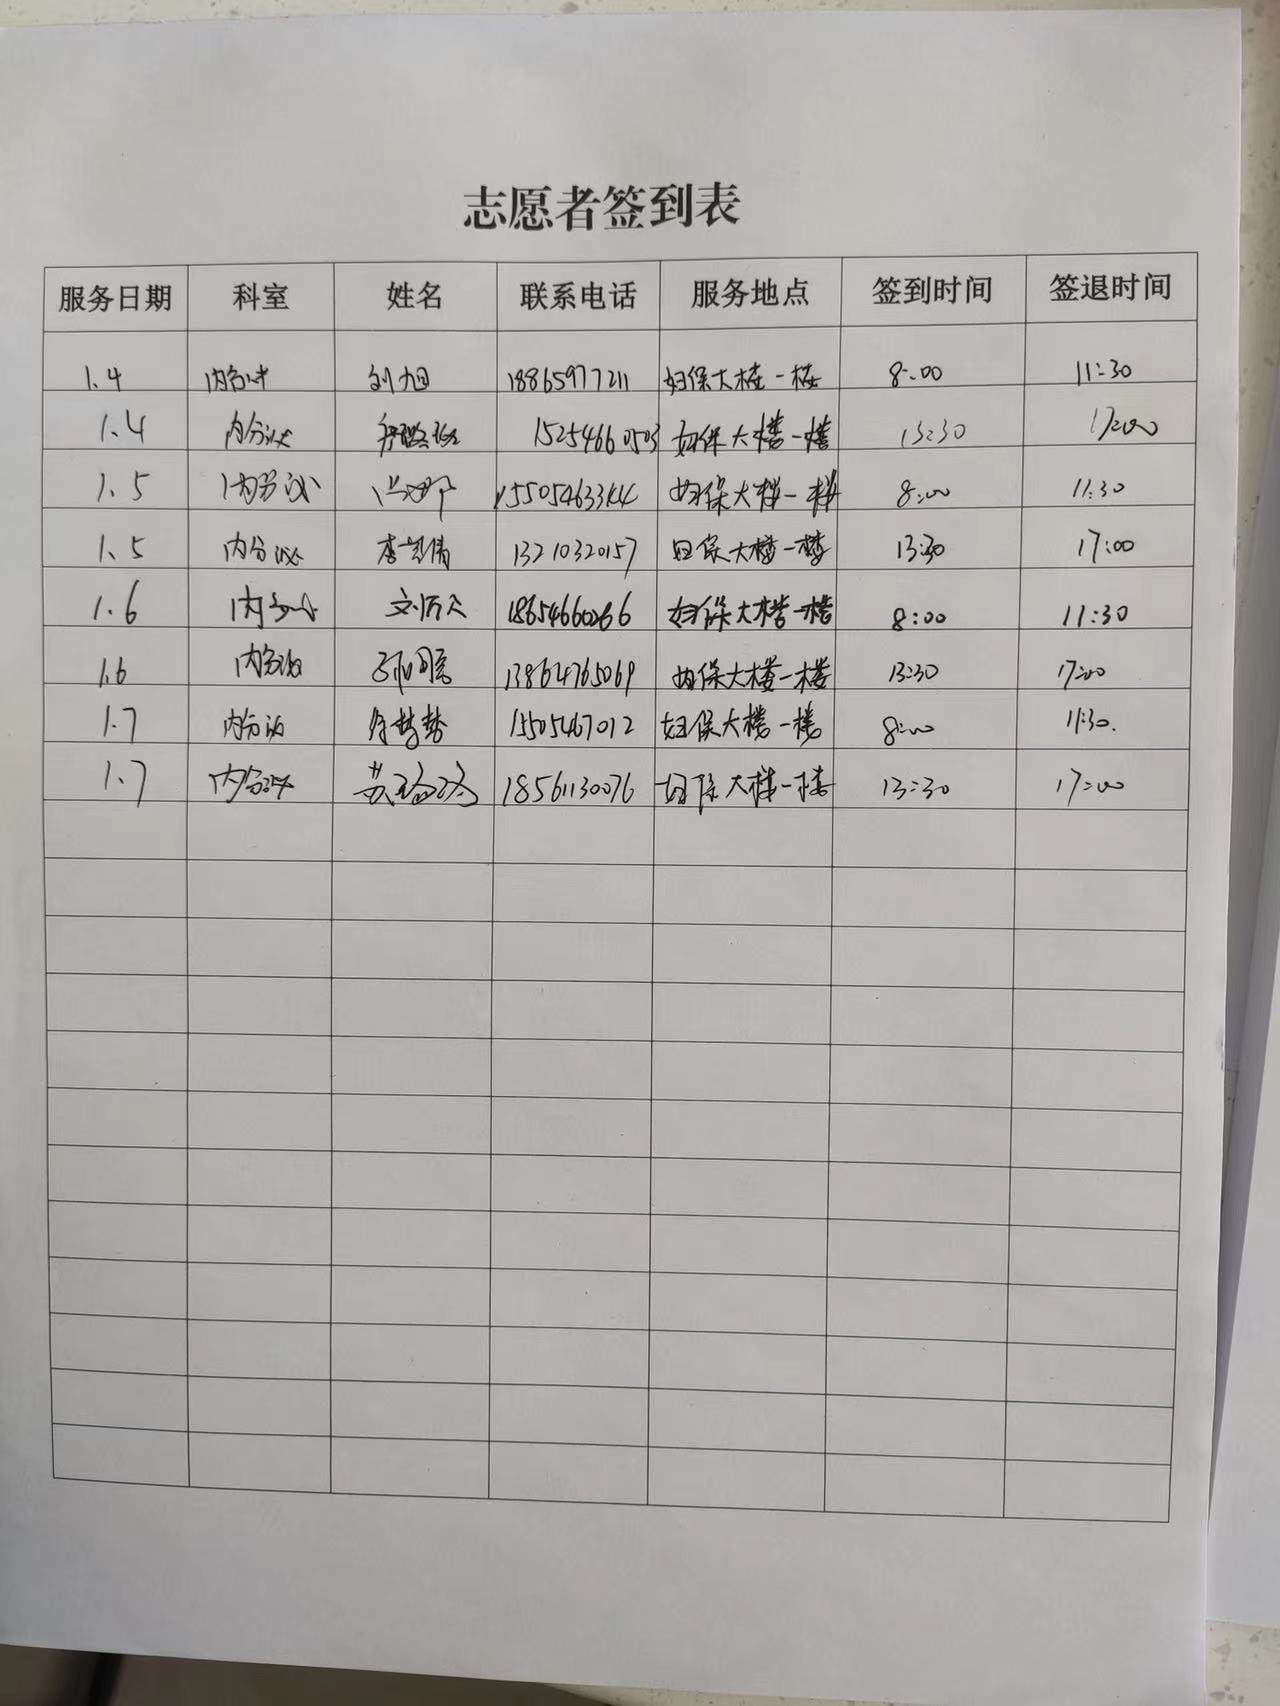 志愿者签到表
服务日期 科室 姓名 联系电话 服务地点 签到时间 签退时间
1.4 内分泌 刘旭 18865977211 妇保大楼一楼 8:00 11:30
1.4 内分泌 15254660503 妇保大楼一楼 13:30 17:00
1.5 内分泌 妇保大楼一楼 8:00 11:30
1.5 内分泌 李 倩 13210320157 妇保大楼一楼 13:30 17:00
1.6 内分泌 刘历久 妇保大楼一楼 8:00 11:30
1.6 内分泌 13864765069 妇保大楼一楼 13:30 17:00
1.7 内分泌 徐梦梦 15505467012 妇保大楼一楼 8:00 11:30.
1.7 内分泌 苏璐璐 18561130076 妇保大楼一楼 13:30 17:00